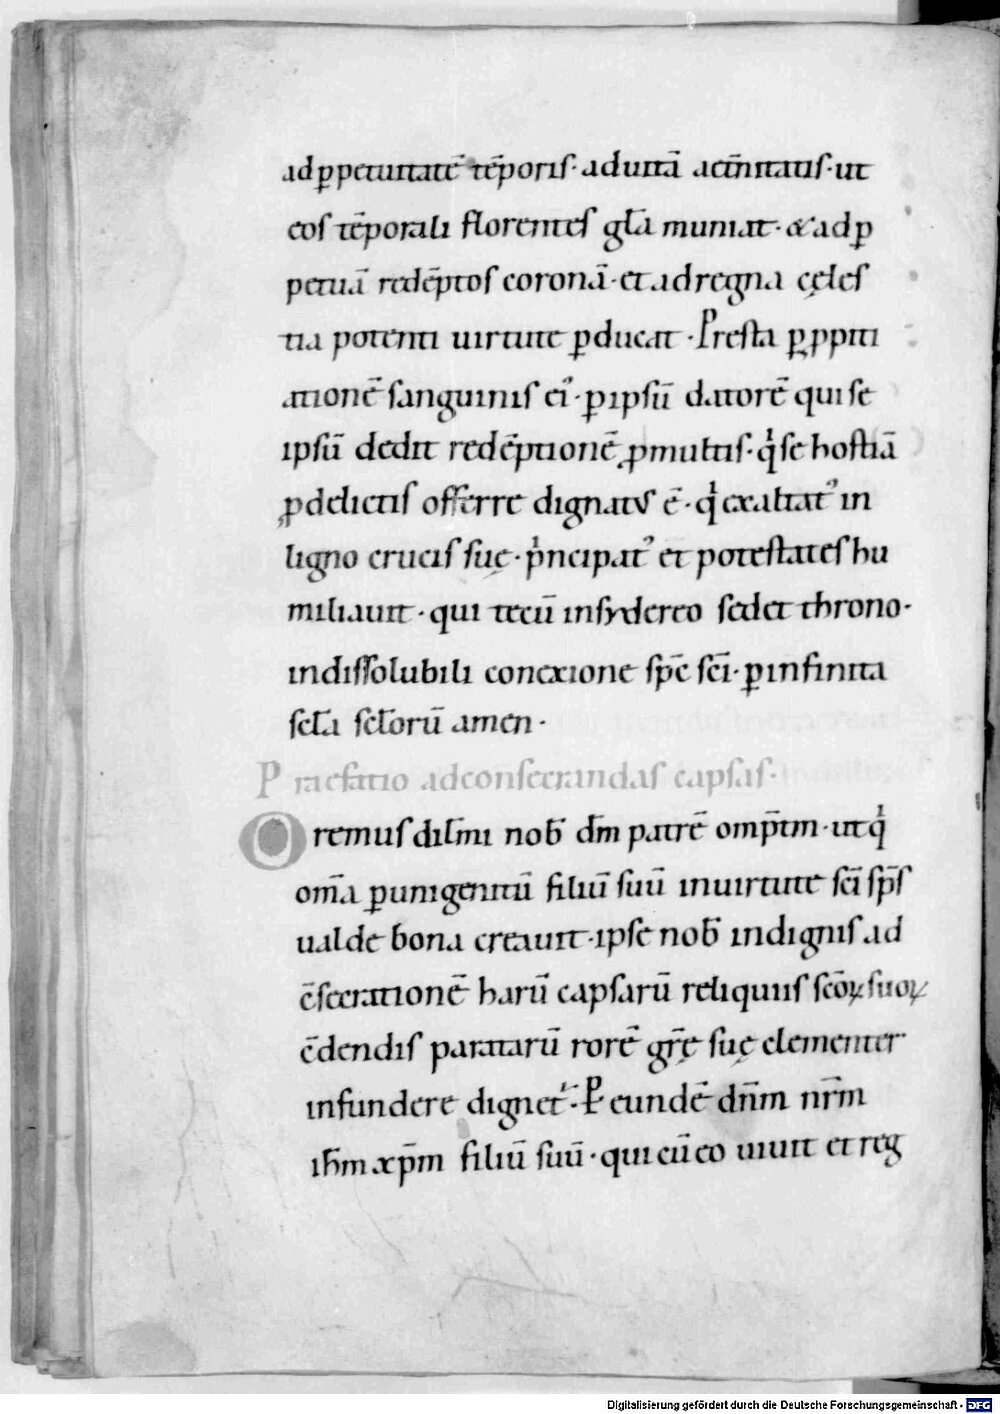 ad ꝑpetuitatē tēporis· ad uitā aet̄nitatis· ut
eos tēporali florentes gl̄a muniat· & ad ꝑ
petuā redēptos coronā· et ad regna cęles
tia potenti uirtute ꝑducat· Presta ꝑ ꝓpiti
ationē sanguinis ei᾽· ꝑ ipsū datorē qui se
ipsū dedit redēptionē ꝓ multis· qͥ se hostiā
ꝓ delictis offerre dignatus ē· qͥ exaltat᾽ in
ligno crucis suę· pͥncipat᾽ et potestates hu
miliauit· qui tecū in sydereo sedet throno·
indissolubili conexione sp̄c sc̄i· ꝑ infinita
sc̄la sc̄lorū amen·
Praefatio ad consecrandas capsas·
Oremus dil̄mi nob̄ dm̄ patrē omp̄tm· ut qͥ
om̄a ꝑ unigenitū filiū suū in uirtute sc̄i sp̄s
ualde bona creauit· ipse nob̄ indignis ad
c̄secrationē harū capsarū reliquiis sc̄oꝝ suoꝝ
c̄dendis paratarū rorē gr̄ę suę clementer
infundere dignet᾽· P eundē dn̄m nr̄m
ih̄m xp̄m filiū suū· qui cū eo uiuit et reg
Digitalisierung gefördert durch die Deutsche Forschungsgemeinschaft - DFG